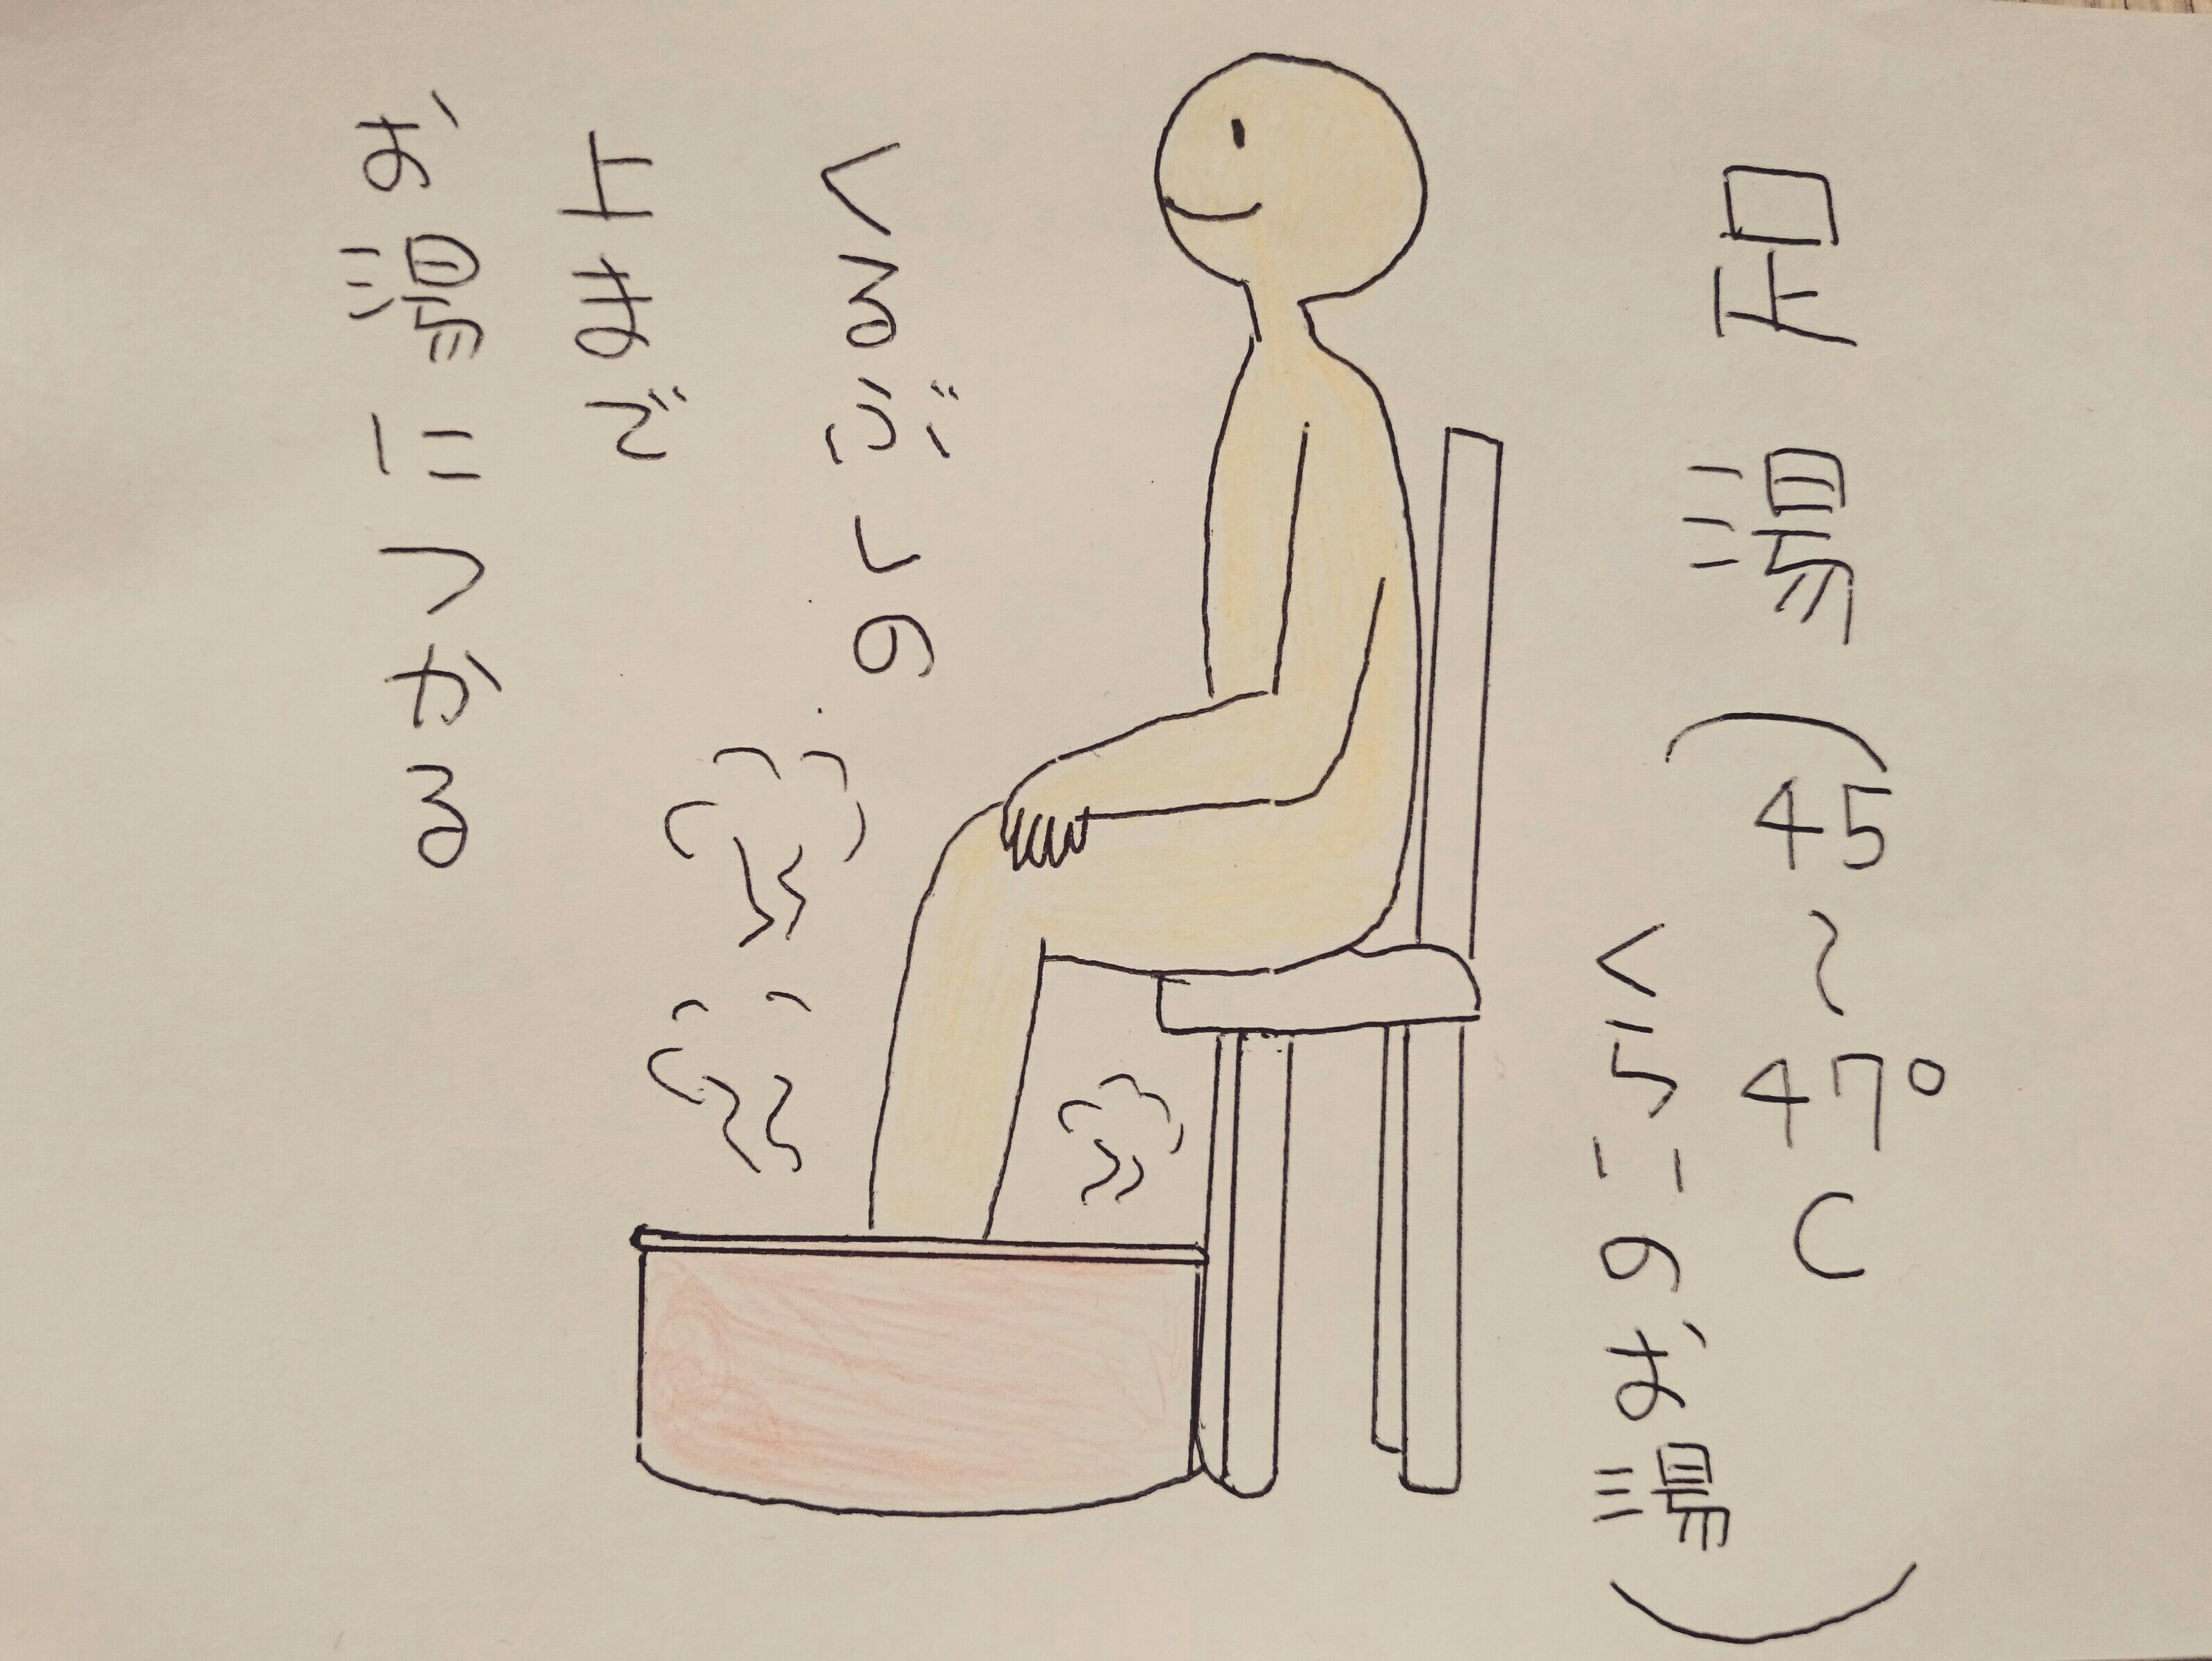 足湯(45~47°C
くらいのお湯)
くるぶしの
上まで
お湯につかる